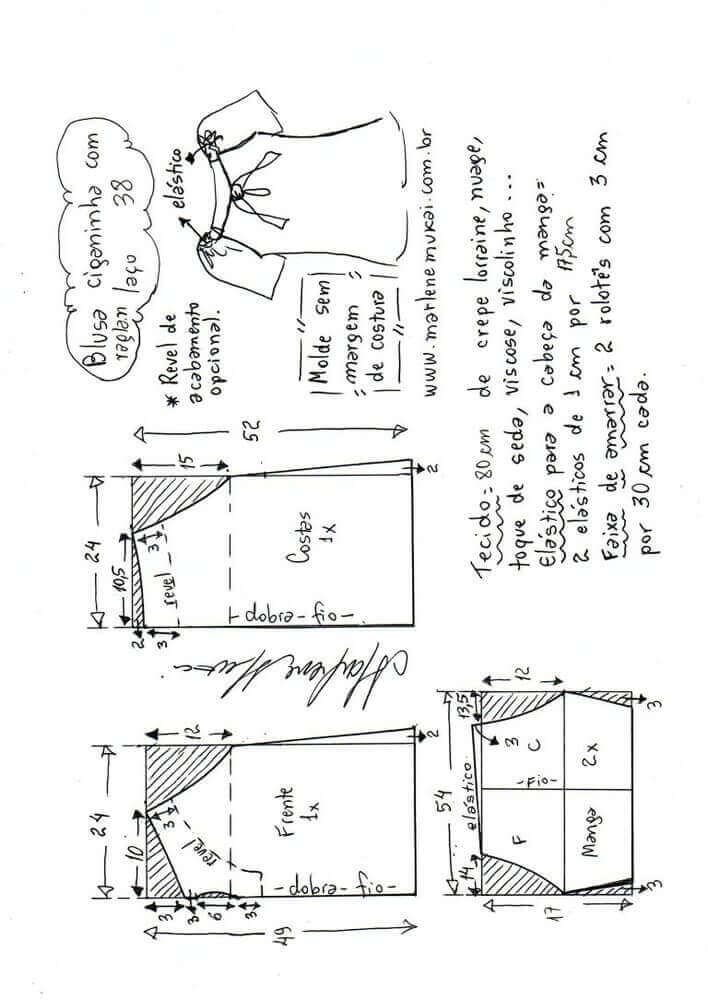 Blusa ciganinha com
raglan laço 38
* Revel de
acabamento
opcional.
elástico
Molde sem
margem
de costura
www.marlenemukai.com.br
24
10
12
3
3
3
6
3
revel
Frente
1x
-dobra- fio-
49
2
24
10,5
15
2
3
3
revel
Costas
1x
-dobra-fio-
52
2
Marlene Mukai
54
14
elástico
13,5
12
3
F
C
-Fio-
Manga
2x
17
3
3
Tecido=80cm de crepe lorraine, nuage,
toque de seda, viscose, viscolinho ...
Elástico para a cabeça da manga=
2 elásticos de 1 cm por 17,5cm
Faixa de amarrar= 2 rolotês com 3 cm
por 30 cm cada.